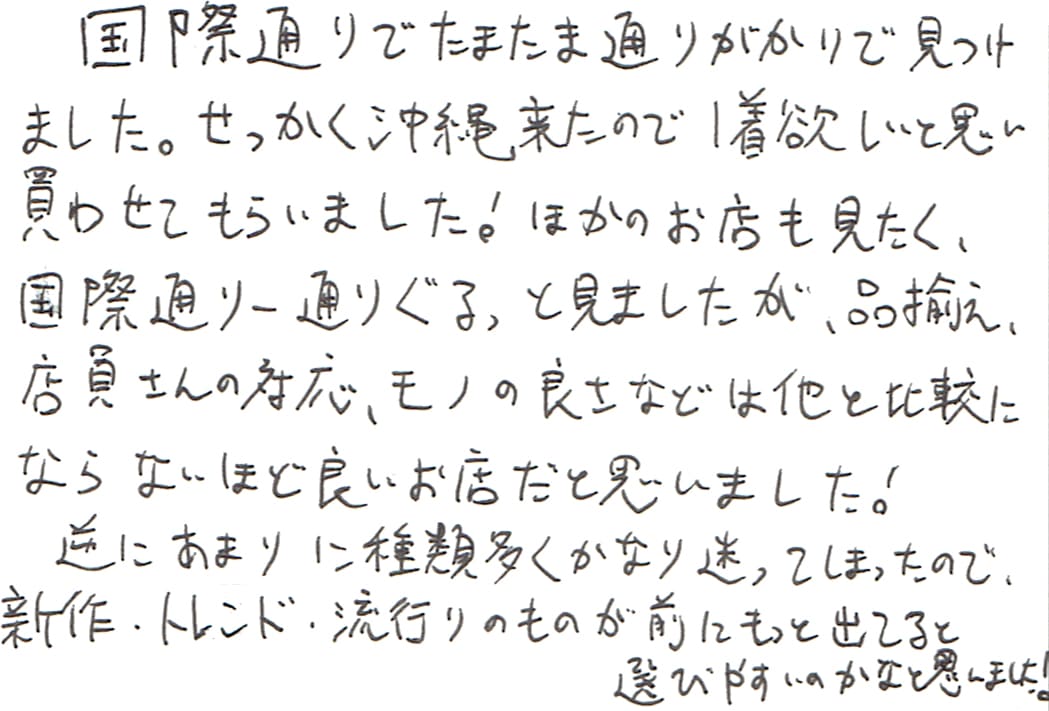 国際通りでたまたま通りがかりで見つけ
ました。せっかく沖縄来たので1着欲しいと思い
買わせてもらいました!ほかのお店も見たく、
国際通り一通りぐるっと見ましたが、品揃え、
店員さんの対応、モノの良さなどは他と比較に
ならないほど良いお店だと思いました!
逆にあまりに種類多くかなり迷ってしまったので、
新作・トレンド・流行りのものが前にもっと出てると
選びやすいのかなと思いました!